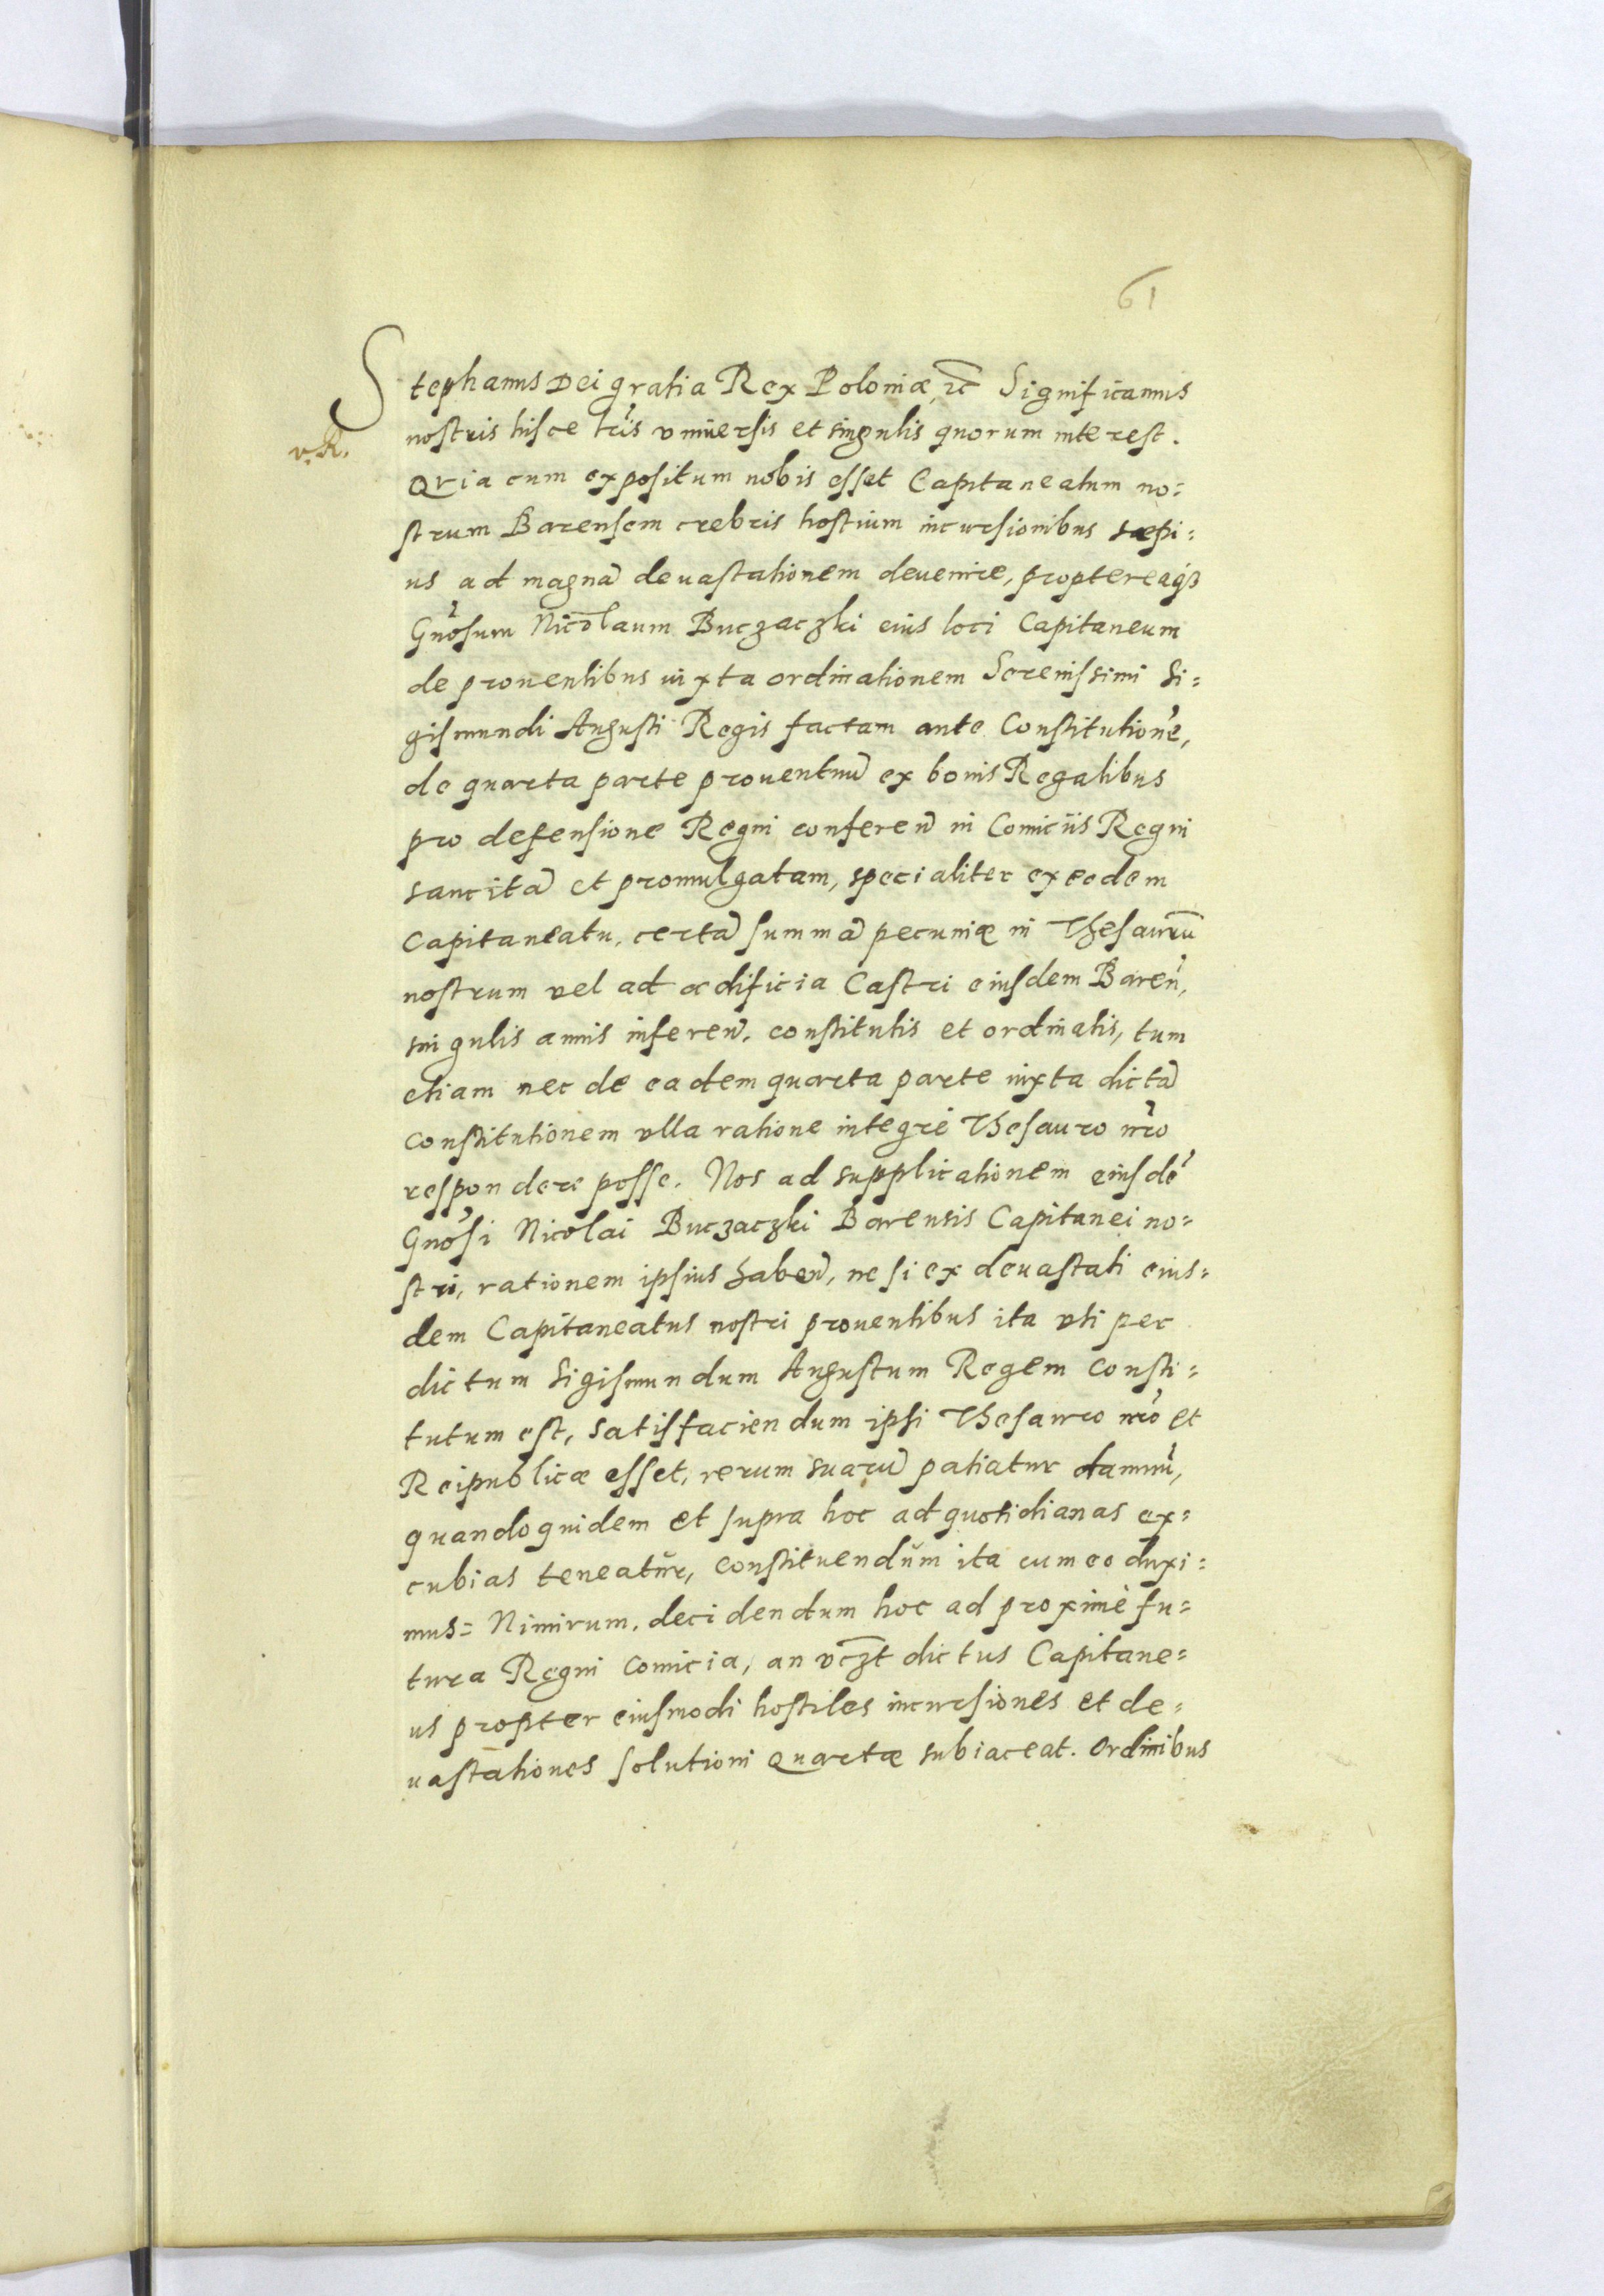 61
Stephanus Dei gratia Rex Poloniæ, ꝛc̄ Significamus
nostris hisce lr̃is vniuersis et singulis quorum interest.
v. R.
Qvia cum expositum nobis esset Capitaneatum no=
strum Barensem crebris hostium incursionibus sæpi=
us ad magnã deuastationem deuenire, propterea q̃ꝫ
Gñosum Nicolaum Buczaczki eius loci Capitaneum
de prouentibus iuxta ordinationem Serenissimi Si=
gismundi Augusti Regis factam ante Constitutionẽ,
de quarta parte prouentuũ ex bonis Regalibus
pro defensione Regni conferen̄ in Comiciis Regni
sancitã et promulgatam, specialiter ex eodem
Capitaneatu, certã summã pecuniæ in Thesaurũ
nostrum vel ad ædificia Castri eiusdem Baren̄,
singulis annis inferen̄. constitutis et ordinatis, tum
etiam nec de eadem quarta parte iuxta dictã
constitutionem vlla ratione integrè Thesauro nr̃o
respondere posse. Nos ad supplicationem eiusdẽ
Gñosi Nicolai Buczaczki Barensis Capitanei no=
stri, rationem ipsius haben̄, ne si ex deuastati eius=
dem Capitaneatus nostri prouentibus ita vti per
dictum Sigismundum Augustum Regem consti=
tutum est, satisfaciendum ipsi Thesauro nr̃o et
Reipublicæ esset, rerum suarũ patiatur damnũ,
quandoquidem et supra hoc ad quotidianas ex=
cubias teneatur, constituendum ita cum eo duxi=
mus= Nimirum, decidendum hoc ad proximè fu=
tura Regni comicia, an vcꝫt dictus Capitane=
us propter eiusmodi hostiles incursiones et de=
uastationes solutioni Quartæ subiaceat. Ordinibus